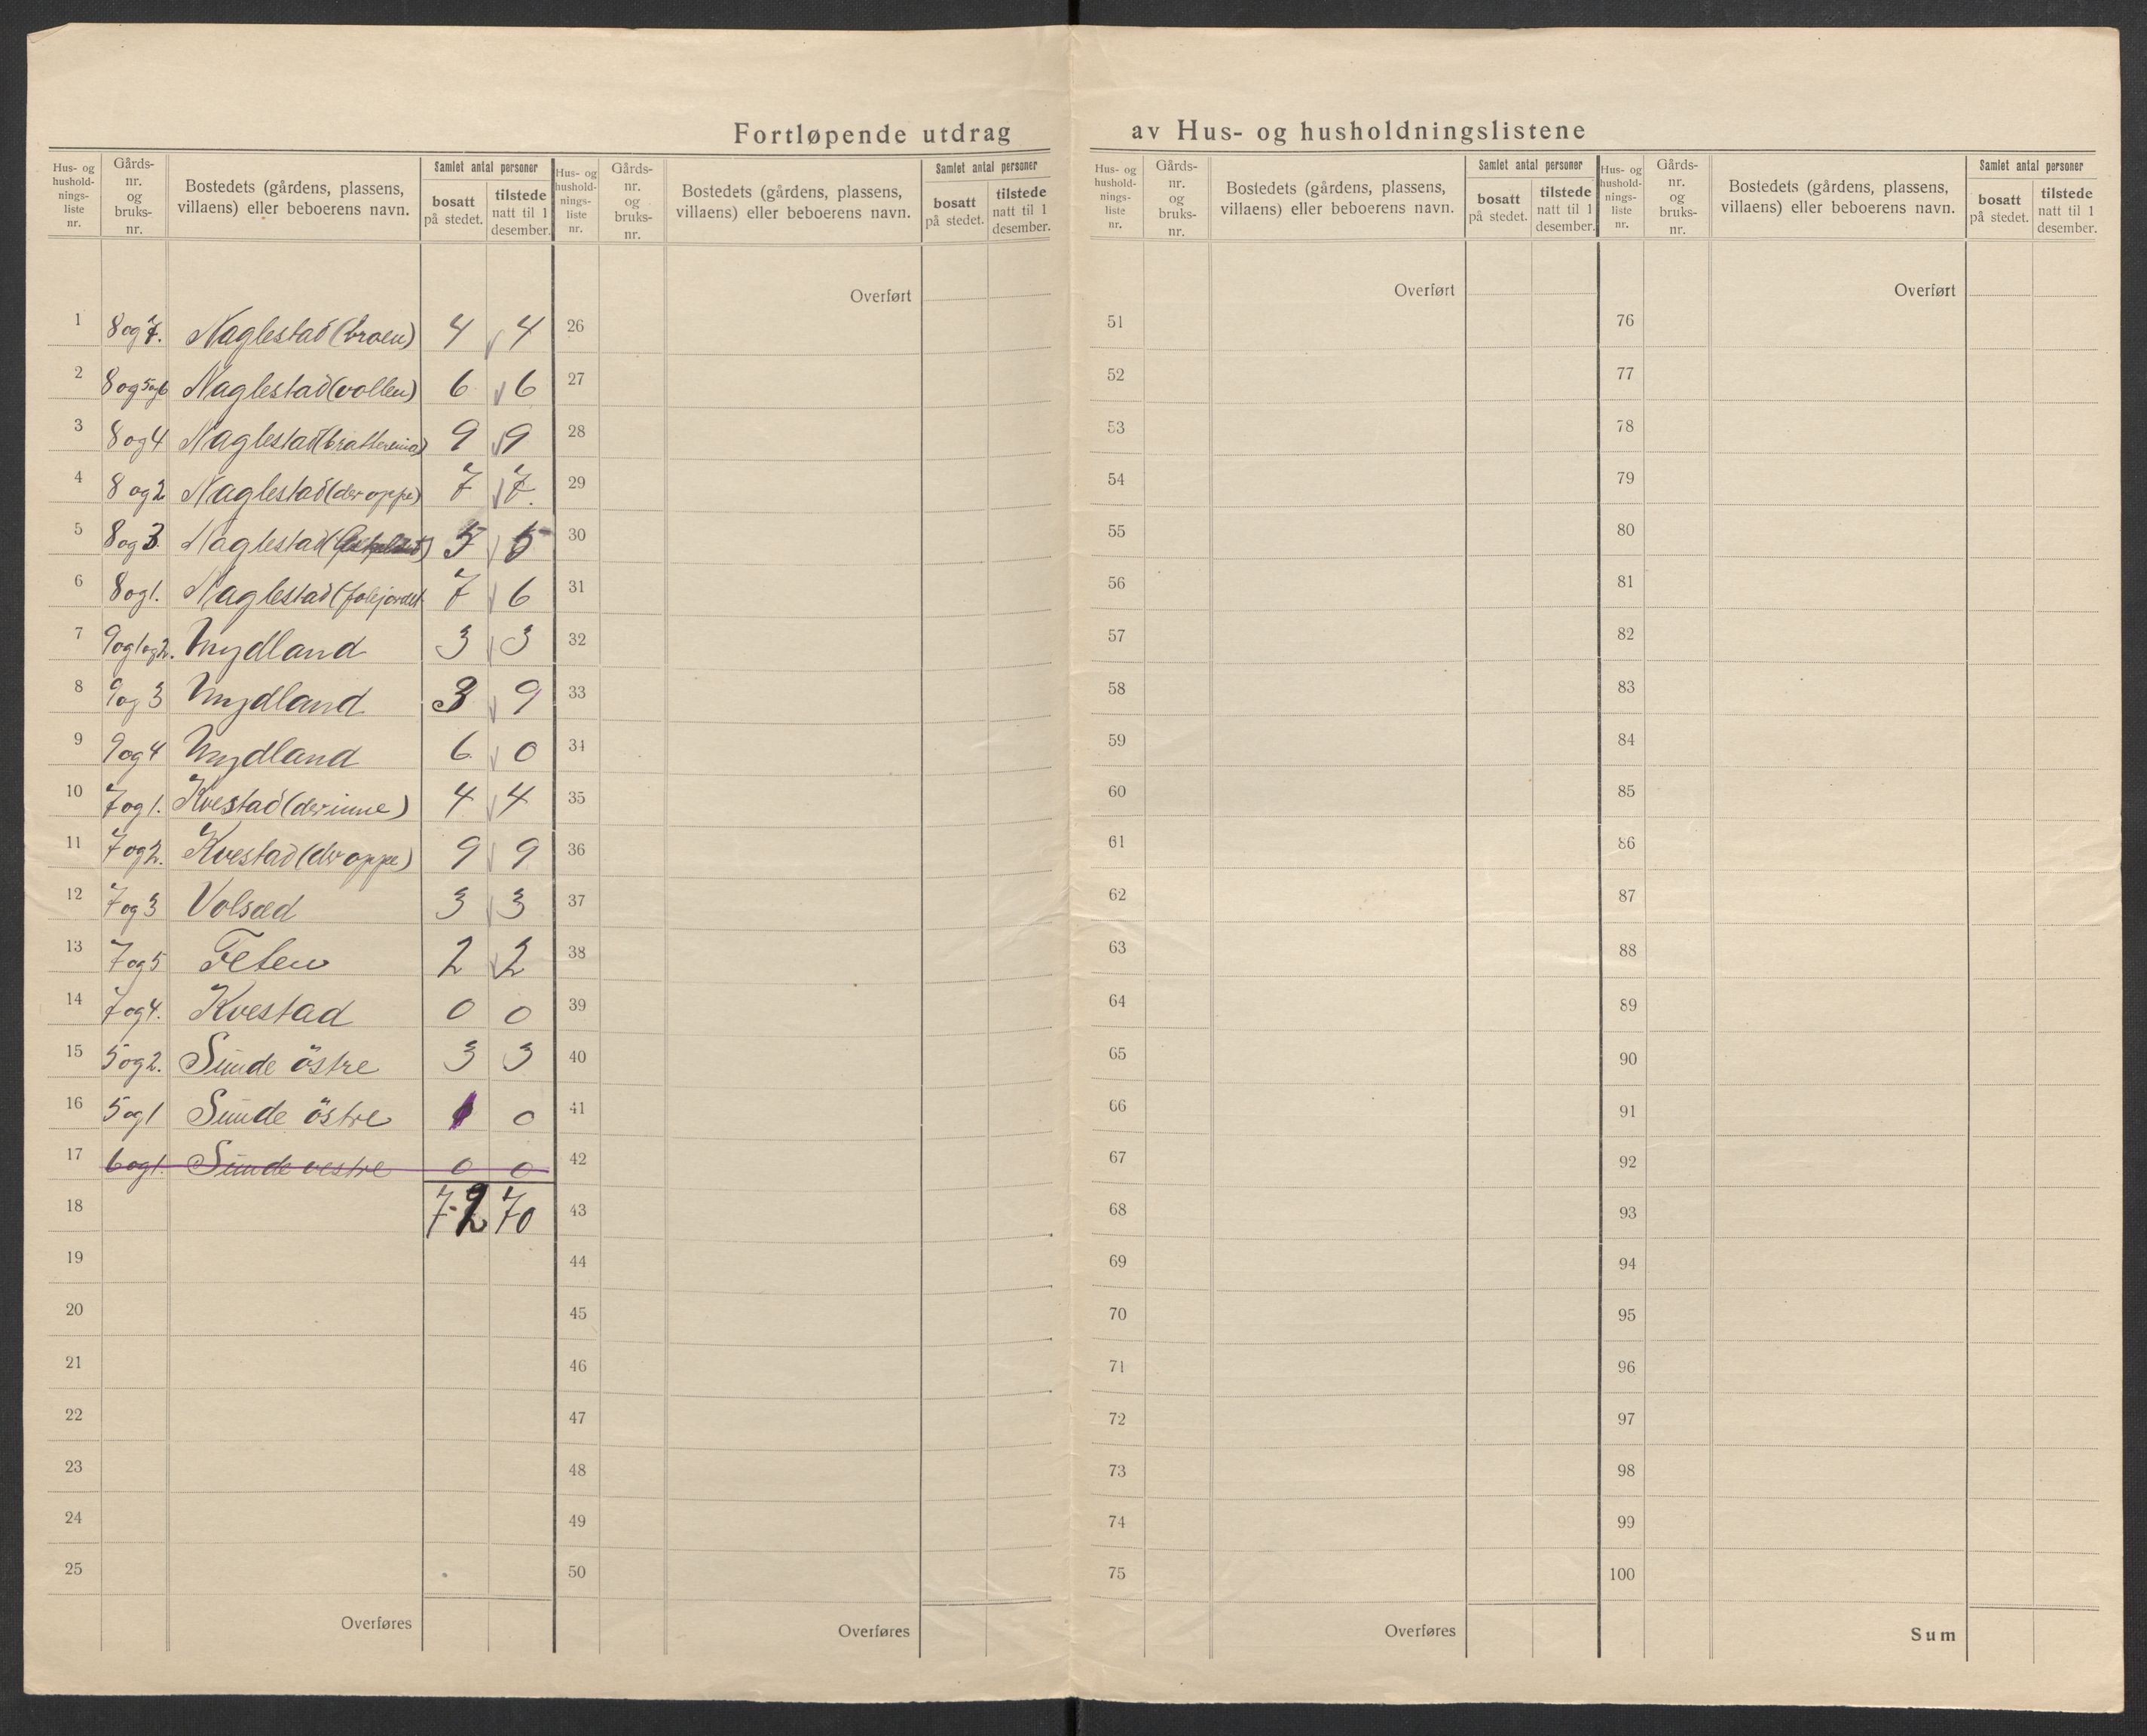 Fortløpende utdrag av Hus- og husholdningslistene
Hus- og hushold- nings- liste nr. Gårds- nr. og bruks- nr. Bostedets (gårdens, plassens, villaens) eller beboerens navn. Samlet antal personer bosatt på stedet. tilstede natt til 1 desember.
1 8 og 7. Naglestad (broen) 4 4
2 8 og 5 og 6 Naglestad (vollen) 6 6
3 8 og 4 Naglestad 9 9
4 8 og 2 Naglestad (der oppe) 7 7.
5 8 og 3 Naglestad 5 5
6 8 og 1. Naglestad 7 6
7 9 og 1 og 2. Mydland 3 3
8 9 og 3 Mydland 3 9
9 9 og 4 Mydland 6 0
10 7 og 1. Kvestad (der inne) 4 4
11 7 og 2. Kvestad (der oppe) 9 9
12 7 og 3 Volsæd 3 3
13 7 og 5 Feten 2 2
14 7 og 4. Kvestad 0 0
15 5 og 2. Sunde östre 3 3
16 5 og 1 Sunde östre 1 0
17 6 og 1. Sunde vestre 0 0
18 72 70
19
20
21
22
23
24
25
Overføres
Hus- og hushold- nings- liste nr. Gårds- nr. og bruks- nr. Bostedets (gårdens, plassens, villaens) eller beboerens navn. Samlet antal personer bosatt på stedet. tilstede natt til 1 desember.
Overført
26
27
28
29
30
31
32
33
34
35
36
37
38
39
40
41
42
43
44
45
46
47
48
49
50
Overføres
Hus- og hushold- nings- liste nr. Gårds- nr. og bruks- nr. Bostedets (gårdens, plassens, villaens) eller beboerens navn. Samlet antal personer bosatt på stedet. tilstede natt til 1 desember.
Overført
51
52
53
54
55
56
57
58
59
60
61
62
63
64
65
66
67
68
69
70
71
72
73
74
75
Overføres
Hus- og hushold- nings- liste nr. Gårds- nr. og bruks- nr. Bostedets (gårdens, plassens, villaens) eller beboerens navn. Samlet antal personer bosatt på stedet. tilstede natt til 1 desember.
Overført
76
77
78
79
80
81
82
83
84
85
86
87
88
89
90
91
92
93
94
95
96
97
98
99
100
Sum